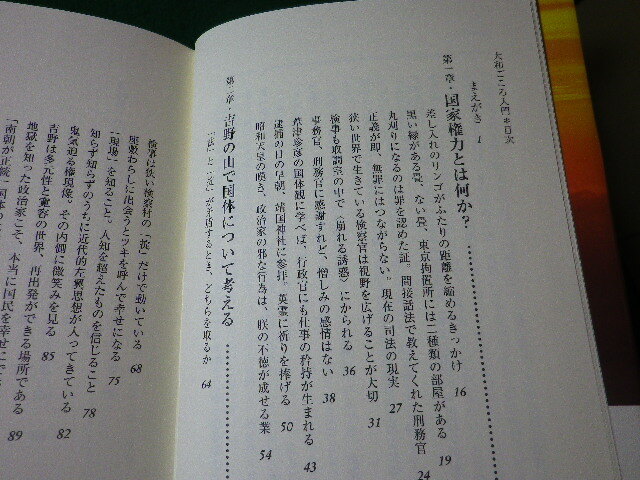 大和ごころ入門＊目次
まえがき 1
第一章・国家権力とは何か?
差し入れのリンゴがふたりの距離を縮めるきっかけ 16
黒い縁がある畳、ない畳、東京拘置所には二種類の部屋がある 19
丸刈りになるのは罪を認めた証、間接話法で教えてくれた刑務官 24
正義が即、無罪にはつながらない。現在の司法の現実 27
狭い世界で生きている検察官は視野を広げることが大切 31
検事も取調室の中で〈崩れる誘惑〉にかられる 36
事務官、刑務官に感謝すれど、憎しみの感情はない 38
葦津珍彦の国体観に学べば、行政官にも仕事の矜持が生まれる 43
逮捕の日の早朝、靖国神社に参拝。英霊に祈りを捧げる 50
昭和天皇の嘆き、政治家の邪な行為は、朕の不徳が成せる業 54
第二章・吉野の山で国体について考える
「法」と「 」が矛盾するとき、どちらを取るか 64
検事は狭い検察村の「掟」だけで動いている 68
座敷わらしに出会うとツキを呼んで幸せになる 75
「現場」を知ること。人知を超えたものを信じること 78
知らず知らずのうちに近代的左翼思想が入ってきている 82
鬼気迫る権現像、その内側に微笑みを見る 85
吉野は多元性と寛容の世界、再出発ができる場所である 89
地獄を知った政治家こそ、本当に国民を幸せにで
「南朝が正統に国体の